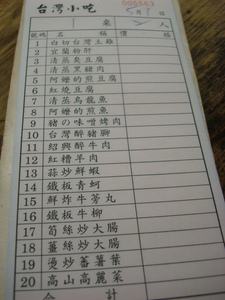 台灣小吃
桌 人
號碼 名 稱 價 格
1 白切台灣土雞
2 宜蘭粉肝
3 清蒸臭豆腐
4 清蒸黑豬肉
5 阿嬤的煎豆腐
6 紅燒豆腐
7 清蒸烏龍魚
8 阿嬤的煎魚
9 豬の味噌烤肉
10 台灣醉豬腳
11 紹興醉牛肉
12 紅糟羊肉
13 蒜炒鮮蝦
14 鐵板青蚵
15 鮮炸牛蒡丸
16 鐵板牛柳
17 筍絲炒大腸
18 薑絲炒大腸
19 燙炒蕃薯葉
20 高山高麗菜
合 計